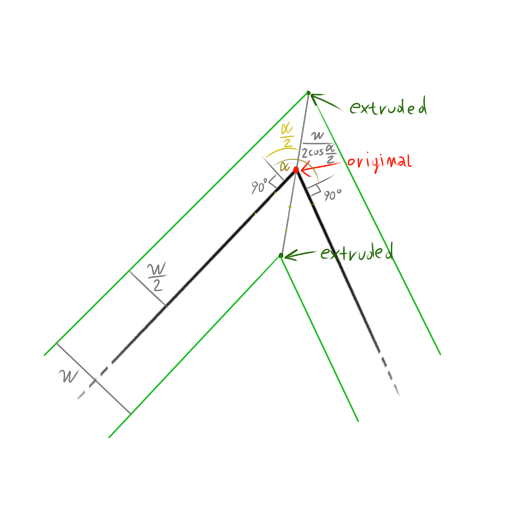 extruded
α/2
w/(2cos α/2)
α
original
90°
90°
extruded
w/2
w